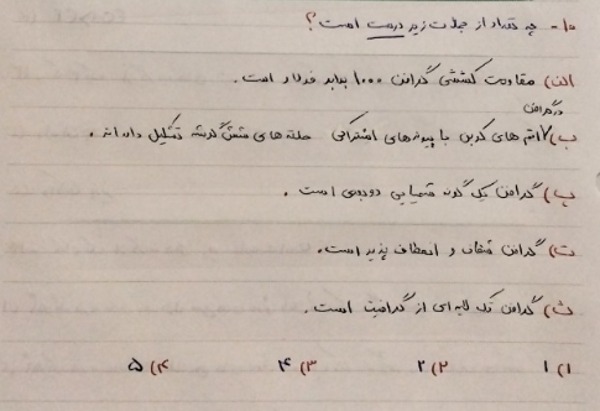 ۱۰- چه تعداد از جملات زیر درست است؟
الف) مقاومت کششی گرافن ۱۰۰۰ برابر فولاد است.
در گرافن
ب) اتم های کربن با پیوندهای اشتراکی حلقه های شش گوشه تشکیل داده اند.
پ) گرافن یک گونه شیمیایی دوبعدی است.
ت) گرافن شفاف و انعطاف پذیر است.
ث) گرافن تک لایه ای از گرافیت است.
۱) ۱ ۲) ۲ ۳) ۴ ۴) ۵